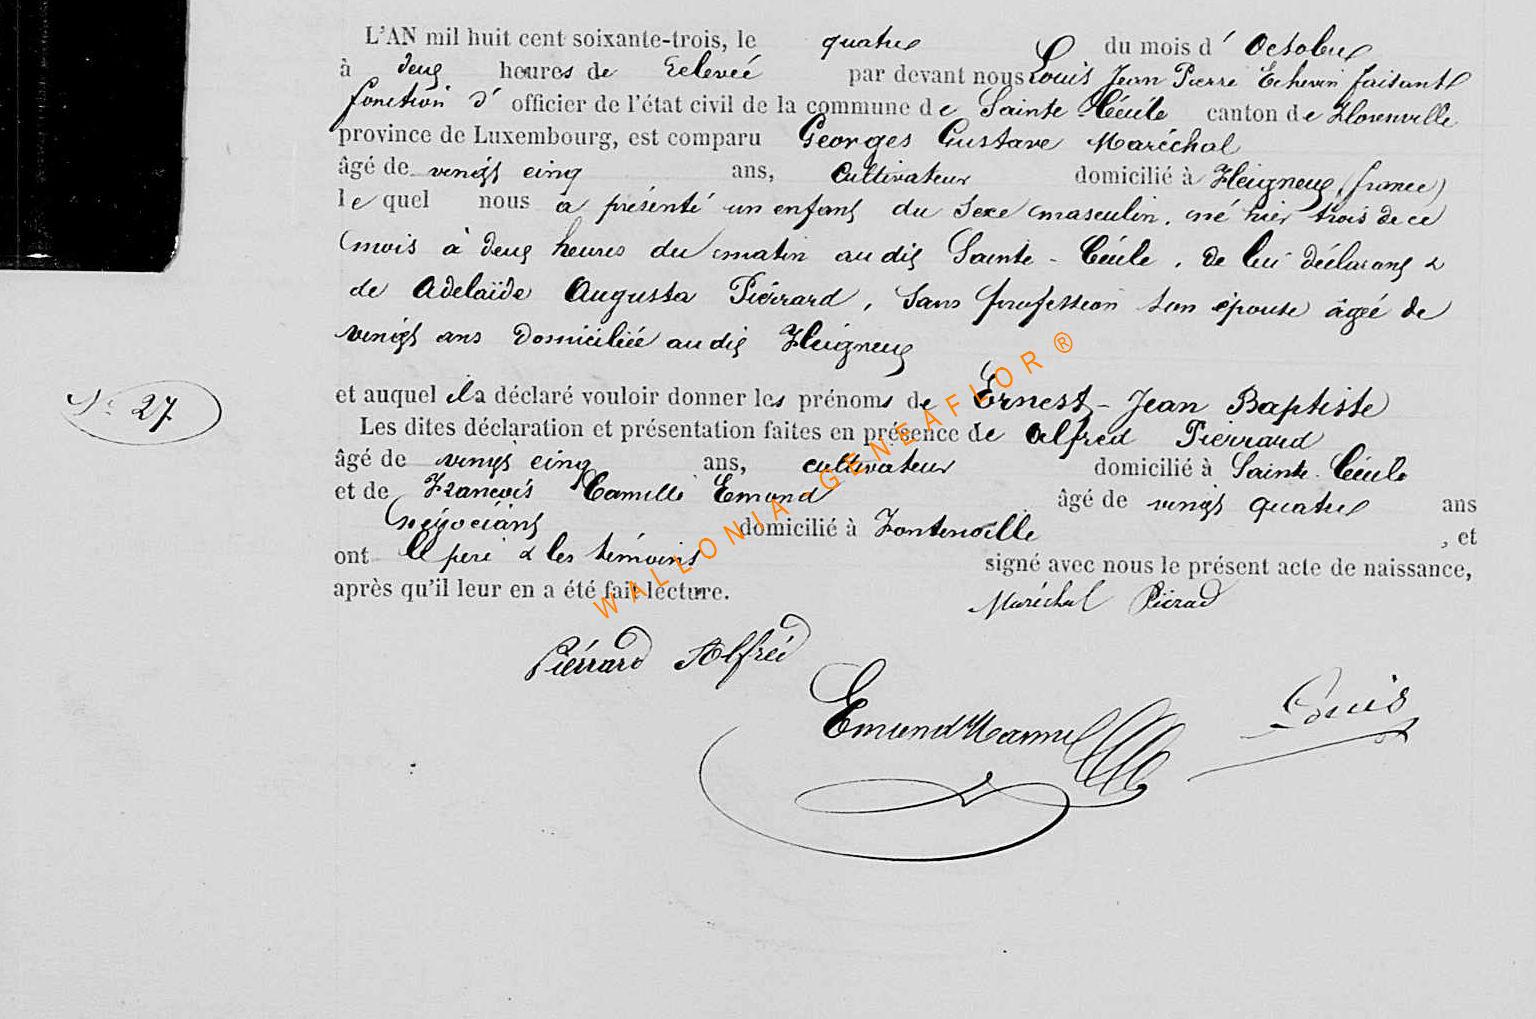 L'AN mil huit cent soixante-trois, le quatre du mois d' Octobre
à deux heures de relevée par devant nous Louis Jean Pierre Echevin faisant
fonction d' officier de l'état civil de la commune de Sainte Cécile canton de Florenville
province de Luxembourg, est comparu Georges Gustave Maréchal
âgé de vingt cinq ans, Cultivateur domicilié à Fleigneux (france)
le quel nous a présenté un enfant du sexe masculin, né hier trois de ce
mois à deux heures du matin au dit Sainte-Cécile, de lui déclarant &
de Adelaïde Augusta Piérrard, Sans profession son épouse âgée de
vingt ans domiciliée au dit Fleigneux
N° 27
et auquel il a déclaré vouloir donner les prénoms de Ernest-Jean Baptiste
Les dites déclaration et présentation faites en présence de Alfred Piérrard
âgé de vingt cinq ans, cultivateur domicilié à Sainte-Cécile
et de François Camille Emond âgé de vingt quatre ans
négociant domicilié à Fontenoille , et
ont le père & les témoins signé avec nous le présent acte de naissance,
après qu'il leur en a été fait lecture.
Maréchal Piérard
Piérrard Alfred
Emond
Louis
WALLONIA-GENEAFLOR®